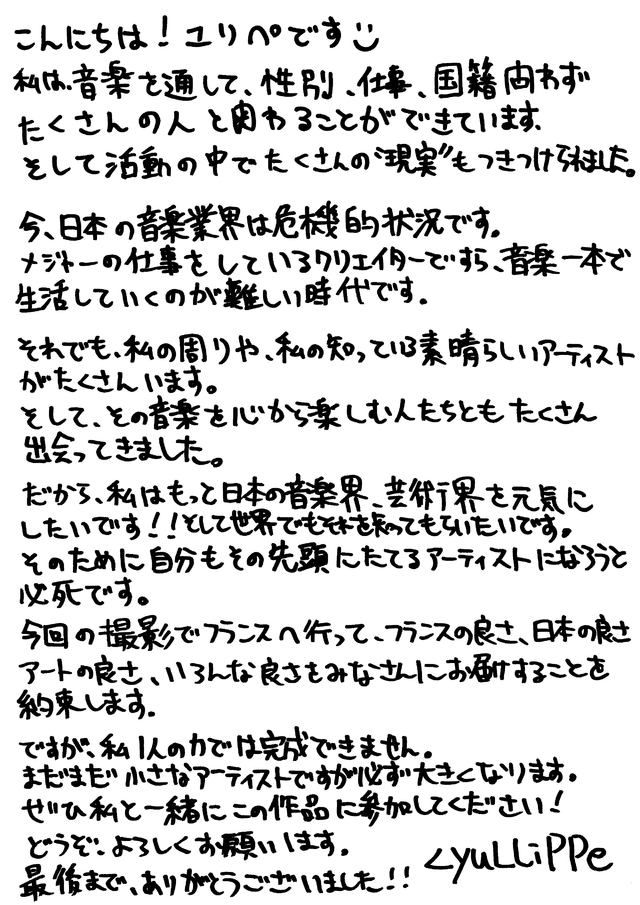 こんにちは！ユリペです
私は音楽を通して、性別、仕事、国籍問わず
たくさんの人と関わることができています。
そして活動の中でたくさんの"現実"もつきつけられました。
今、日本の音楽業界は危機的状況です。
メジャーの仕事をしているクリエイターですら、音楽一本で
生活していくのが難しい時代です。
それでも、私の周りや、私の知っている素晴らしいアーティスト
がたくさんいます。
そして、その音楽を心から楽しむ人たちともたくさん
出会ってきました。
だから、私はもっと日本の音楽界、芸術界を元気に
したいです！！そして世界でもそれを知ってもらいたいです。
そのために自分もその先頭にたてるアーティストになろうと
必死です。
今回の撮影でフランスへ行って、フランスの良さ、日本の良さ
アートの良さ、いろんな良さをみなさんにお届けすることを
約束します。
ですが、私1人の力では完成できません。
まだまだ小さなアーティストですが必ず大きくなります。
ぜひ私と一緒にこの作品に参加してください！
どうぞ、よろしくお願いします。
最後まで、ありがとうございました！！
<yuLLiPPe